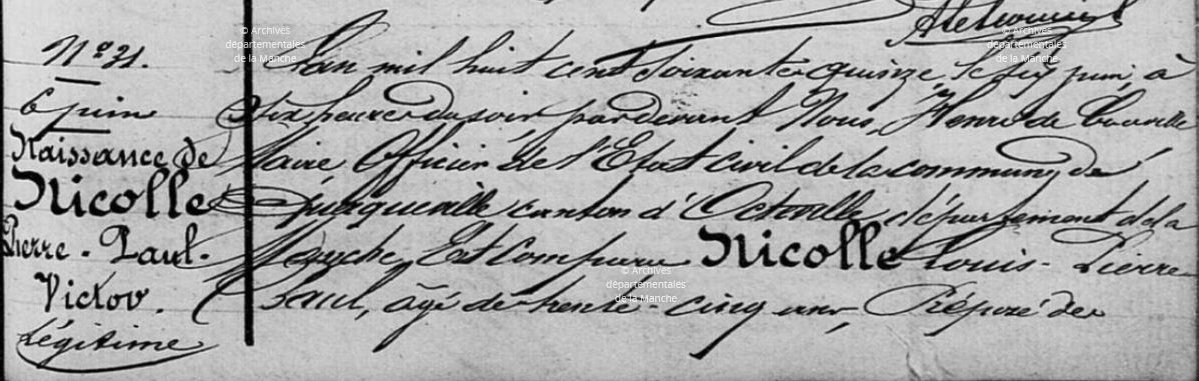 N° 31.
6 juin
Naissance de
Nicolle
Pierre - Paul.
Victor.
Légitime
L'an mil huit cent soixante quinze, le six juin, à
six heures du soir pardevant Nous, Henri de
Maire, Officier de l'Etat civil de la commune de
canton d'Octeville, département de la
Manche, Est Comparu Nicolle Louis - Pierre
Paul, âgé de trente-cinq ans, Préposé des
© Archives
départementales
de la Manche
© Archives
départementales
de la Manche
© Archives
départementales
de la Manche